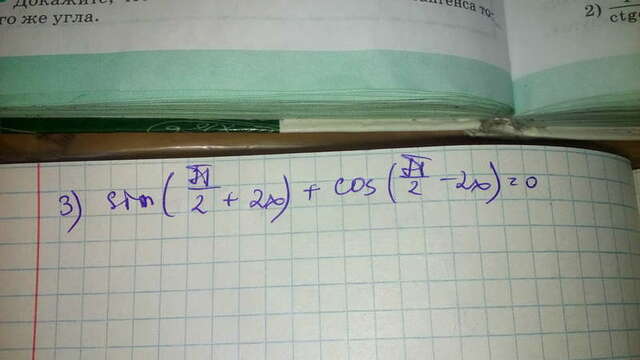 Докажите, что
то-
го же угла.
2)
ctg
3) sin(π/2 + 2x) + cos(π/2 - 2x) = 0